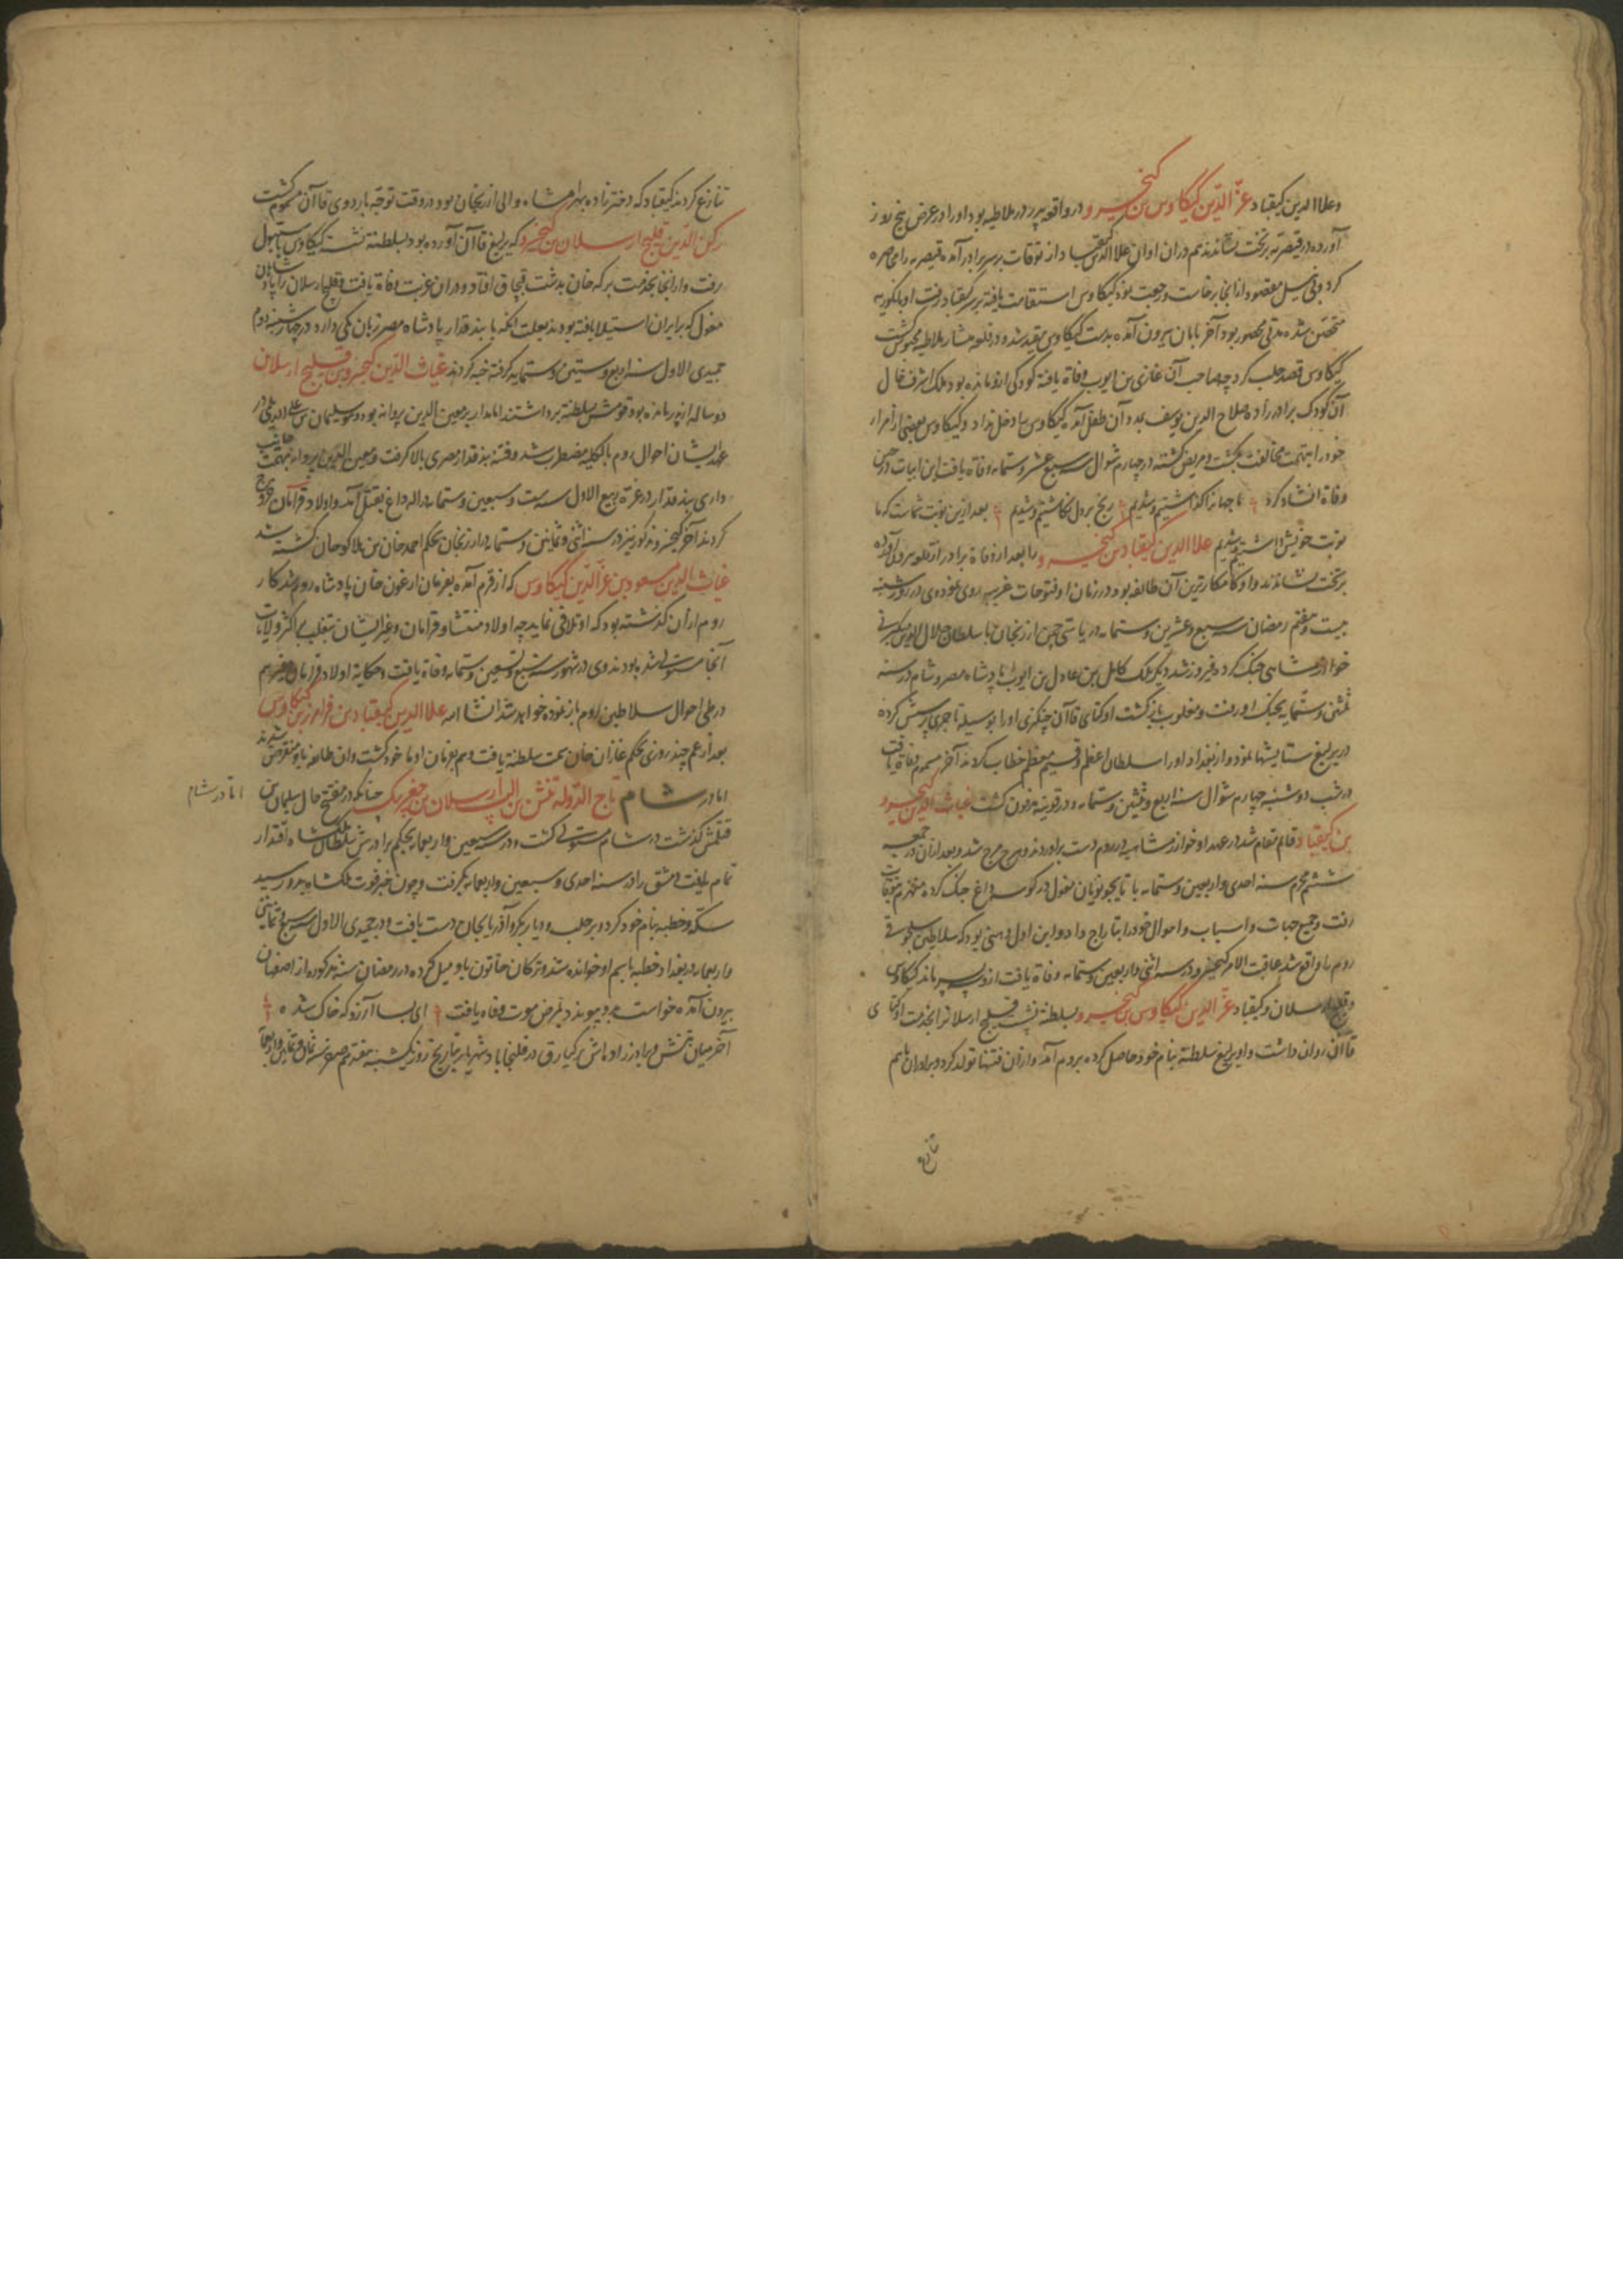 وعلاالدین کیقباد عزّالدّین کیکاوس بن کیخسرو در واقعه پدر در ملاطیه بود او را در عرض پنج روز
آورده در قیصریه بر تخت نشاندند هم دران اوان علاالدین کیقباد از توقات بر سر برادر آمده قیصریه را محاصره
کرد و بی نیل مقصود از انجا برخاست و رجعت نمود کیکاوس استقامت یافته بر سر کیقباد رفت او بانکوریه
متحصّن شده مدتی محصور بود آخر بامان بیرون آمده بدست کیکاوس مقید شد و در قلعه منشار ملاطیه محبوس گشت
کیکاوس قصد حلب کرد چه صاحب آن غازی بن ایوب وفاة یافته کودکی ازو مانده بود ملک اشرف خال
آن کودک برادرزاده صلاح الدین یوسف بمدد آن طفل آمده کیکاوس را دخل نداد و کیکاوس بعضی از امراء
خود را بتهمت مخالفت بکشت و مریض گشته در چهارم شوال سنه سبع عشر و ستمایه وفاة یافت این ابیات در حین
وفاة انشاد کرد ما جهانرا گذاشتیم و شدیم رنج بر دل نگاشتیم و شدیم بعد ازین نوبت شماست که ما
نوبت خویش داشتیم و شدیم علاالدین کیقباد بن کیخسرو را بعد از وفاة برادر از قلعه بیرون آورده
بر تخت نشاندند و او کامکارترین آن طائفه بود و در زمان او فتوحات غریب روی نموده وی در روز شنبه
بیست و هفتم رمضان سنه سبع و عشرین و ستمایه در یاسی چمن ارزنجان با سلطان جلال الدین
خوارزمشاهی جنک کرد و فیروز شد دیگر ملک کامل بن عادل بن ایوب پادشاه مصر و شام در سنه
ثلثین و ستمایه بجنک او رفت و مغلوب بازگشت اوکتای قاآن چنکزی او را بوسیله تاجری پرسش کرده
در یرلیغ ستایشها نمود و از بغداد او را سلطان اعظم و قسیم معظم خطاب کردند آخر مسموم وفاة یافت
در شب دوشنبه چهارم شوال سنه اربع و ثلثین و ستمایه و در قونیه مدفون گشت غیاث الدین کیخسرو
بن کیقباد قائم مقام شد در عهد او خوارزمشاهیه در روم دست براوردند و هرج مرج شد و بعد ازان در جمعه
ششم محرم سنه احدی و اربعین و ستمایه با تایجو نویان مغول در کوسه داغ جنک کرده منهزم بتوقات
رفت و جمیع جهات و اسباب و اموال خود را بتاراج داد و این اول وهنی بود که سلاطین سلجوقی
روم را واقع شد عاقبت الامر کیخسرو در سنه اثنی و اربعین و ستمایه وفاة یافت ازو سه پسر ماند کیکاوس
و قلج ارسلان و کیقباد عزّالدین کیکاوس بن کیخسرو بسلطنة نشسته قلیج ارسلانرا بخدمت اوکتای
قاآن روان داشت و او یرلیغ سلطنة بنام خود حاصل کرده بروم آمد و ازان فتنها تولد کرد و برادران باهم
تنازع
تنازع کردند کیقباد که دخترزاده بهرامشاه والی ارزنجان بود در وقت توجّه باردوی قاآن مسموم گشت
رکن الدّین قلیج ارسلان بن کیخسرو که یرلیغ قاآن آورده بود بسلطنة نشست کیکاوس باستنبول
رفت و از انجا بخدمت برکه خان بدشت قبچاق افتاد و دران غربت وفاة یافت و قلیج ارسلان را پادشاهان
مغول که بر ایران استیلا یافته بودند بعلت انکه با بندقدار پادشاه مصر زبان یکی دارد در چهارشنبه دوم
جمیدی الاول سنه اربع و ستین و ستمایه گرفته خبه کردند غیاث الدّین کیخسرو بن قلیج ارسلان
دو ساله از پدر مانده بود قومش بسلطنة برداشتند امامدار بر معین الدین پروانه بود
عهد ایشان احوال روم بالکلیه مضطرب شد و فتنه بندقدار مصری بالا گرفت و معین الدین پروانه بتهمت جانب
داری بندقدار در غرّه ربیع الاول سنه ست و سبعین و ستمایه در اله داغ بقتل آمد و اولاد قرامان خروج
کردند آخر کیخسرو مذکور نیز در سنه اثنی و ثمانین و ستمایه در ارزنجان بحکم احمد خان بن هلاکو خان کشته شد
غیاث الدین مسعود بن عزّالدّین کیکاوس که از قرم آمده بفرمان ارغون خان پادشاه روم شد کار
روم ازان گذشته بود که او تلافی نماید چه اولاد منتشا و قرامان و غیر ایشان بتغلب بر اکثر ولایات
آنجا مستولی شده بودند وی در شهور سنه سبع و تسعین و ستمایه وفاة یافت و حکایة اولاد قرامان
در طی احوال سلاطین روم باز نموده خواهد شد انشاالله علاالدین کیقباد بن فرامرز بن کیکاوس
بعد از عم چند روزی بحکم غازان خان سمت سلطنة یافت و هم بفرمان او باخر گشت و ان طائفه باو منقرض شدند
اما در شام تاج الدّوله تتش بن الب ارسلان بن چغربیک چنانکه در مفتح حال سلیمان بن
قتلمش گذشت در شام مستولی گشت و در سنه سبعین و اربعمایه بحکم برادرش سلطان ملکشاه اقتدار
تمام یافت دمشق را در سنه احدی و سبعین و اربعمایه بگرفت و چون خبر فوت ملکشاه بدو رسید
سکه و خطبه بنام خود کرد و بر حلب و دیاربکر و آذربایجان دست یافت و در جمیدی الاول سنه سبع و ثمانین
و اربعمایه در بغداد خطبه باسم او خوانده شد و ترکان خاتون باو میل کرده در رمضان سنه مذکوره از اصفهان
بیرون آمده خواست بدو پیوندد بمرض موت وفاة یافت ای بسا آرزو که خاک شده
آخر میان تتش و برادرزاده‌اش برکیارق در روز یکشنبه هفدهم صفر سنه ثمان و ثمانین و اربعمایه
اما در شام